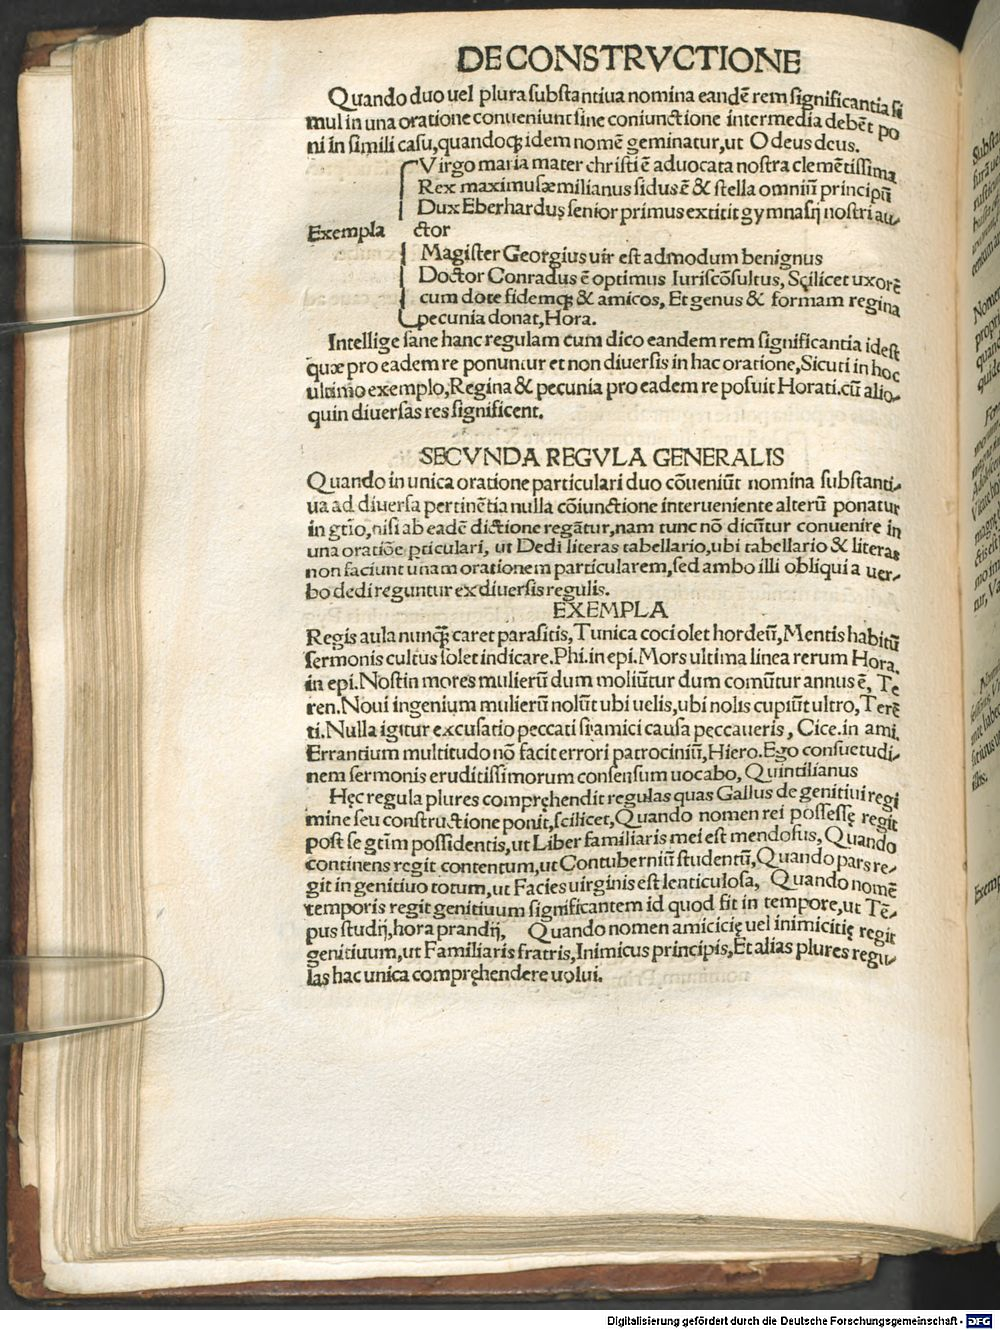 DE CONSTRVCTIONE
Quando duo uel plura substantiua nomina eandē rem significantia si
mul in una oratione conueniunt sine coniunctione intermedia debēt po
ni in simili casu, quandoqꝫ idem nomē geminatur, ut O deus deus.
Virgo maria mater christi ē aduocata nostra clemētissima
Rex maximus æmilianus sidus ē & stella omniū principū
Dux Eberhardus senior primus extitit gymnasij nostri au-
Exempla ctor
Magister Georgius uir est admodum benignus
Doctor Conradus ē optimus Iuriscōsultus, Scilicet uxorē
cum dote fidemqꝫ & amicos, Et genus & formam regina
pecunia donat, Hora.
Intellige sane hanc regulam cum dico eandem rem significantia idest
quæ pro eadem re ponuntur et non diuersis in hac oratione, Sicuti in hoc
ultimo exemplo, Regina & pecunia pro eadem re posuit Horati. cū alio-
quin diuersas res significent.
SECVNDA REGVLA GENERALIS
Quando in unica oratione particulari duo cōueniūt nomina substanti-
ua ad diuersa pertinētia nulla cōiunctione interueniente alterū ponatur
in gtīo, nisi ab eadē dictione regātur, nam tunc nō dicūtur conuenire in
una oratiōe pticulari, ut Dedi literas tabellario, ubi tabellario & literas
non faciunt unam orationem particularem, sed ambo illi obliqui a uer-
bo dedi reguntur ex diuersis regulis.
EXEMPLA
Regis aula nunqꝫ caret parasitis, Tunica coci olet hordeū, Mentis habitū
sermonis cultus solet indicare. Phi. in epi. Mors ultima linea rerum Hora.
in epi. Nostin mores mulierū dum moliūtur dum comūtur annus ē, Te
ren. Noui ingenium mulierū nolūt ubi uelis, ubi nolis cupiūt ultro, Terē
ti. Nulla igitur excusatio peccati si amici causa peccaueris, Cice. in ami.
Errantium multitudo nō facit errori patrociniū, Hiero. Ego consuetudi-
nem sermonis eruditissimorum consensum uocabo, Quintilianus
Hęc regula plures compręhendit regulas quas Gallus de genitiui regi
mine seu constructione ponit, scilicet, Quando nomen rei possessę regit
post se gtīm possidentis, ut Liber familiaris mei est mendosus, Quando
continens regit contentum, ut Contuberniū studentū, Quando pars re-
git in genitiuo totum, ut Facies uirginis est lenticulosa, Quando nomē
temporis regit genitiuum significantem id quod fit in tempore, ut Tē-
pus studij, hora prandij, Quando nomen amicicię uel inimicitię regit
genitiuum, ut Familiaris fratris, Inimicus principis, Et alias plures regu-
las hac unica compręhendere uolui.
Digitalisierung gefördert durch die Deutsche Forschungsgemeinschaft - DFG